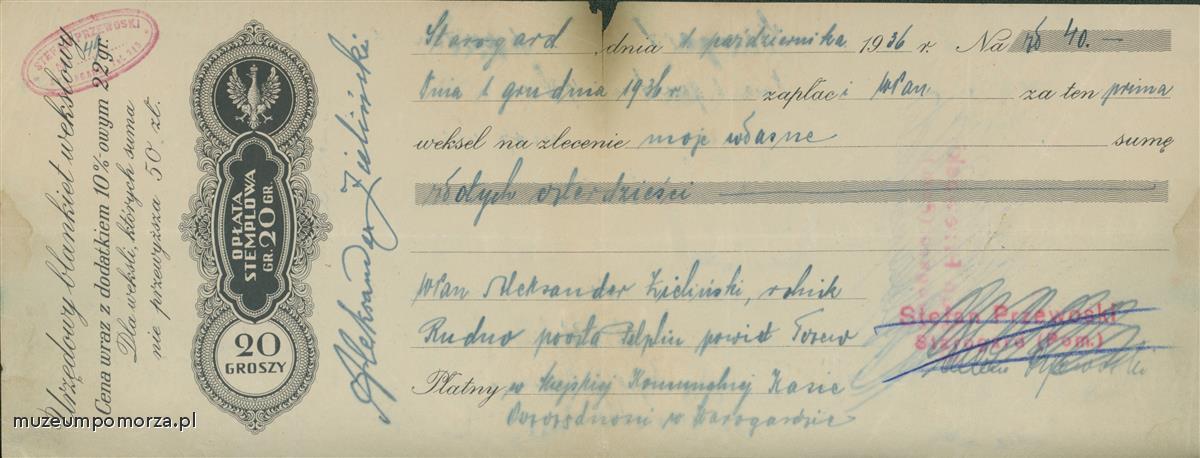 STEFAN PRZEWOSKI
Urzędowy blankiet wekslowy
Cena wraz z dodatkiem 10%-owym 22 gr.
Dla weksli, których suma
nie przewyższa 50 zł.
OPŁATA
STEMPLOWA
GR. 20 GR.
20
GROSZY
Aleksander Zieliński
Starogard, dnia 1 października 1936 r. Na zł 40.—
Dnia 1 grudnia 1936 r. zapłaci WPan za ten prima
weksel na zlecenie moje własne sumę
złotych czterdzieści
WPan Aleksander Zieliński, rolnik
Rudno poczta Pelplin powiat Tczew
Płatny w Miejskiej Komunalnej Kasie
Oszczędności w Starogardzie
Stefan Przewoski
Starogard (Pom.)
Stefan Przewoski
muzeumpomorza.pl